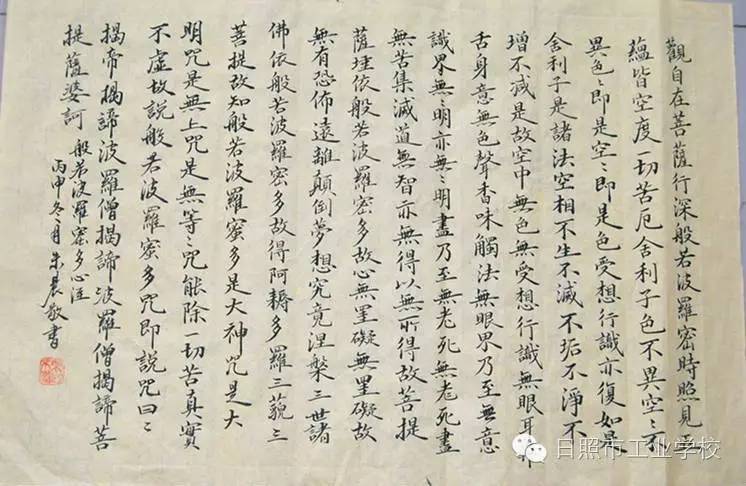 觀自在菩薩行深般若波羅密時照見
蘊皆空度一切苦厄舍利子色不異空〻不
異色〻即是空〻即是色受想行識亦復如是
舍利子是諸法空相不生不滅不垢不淨不
增不減是故空中無色無受想行識無眼耳
舌身意無色聲香味觸法無眼界乃至無意
識界無〻明亦無〻明盡乃至無老死無老死盡
無苦集滅道無智亦無得以無所得故菩提
薩埵依般若波羅密多故心無罣礙無罣礙故
無有恐佈遠離顛倒夢想究竟涅槃三世諸
佛依般若波羅密多故得阿耨多羅三藐三
菩提故知般若波羅蜜多是大神咒是大
明咒是無上咒是無等〻咒能除一切苦真實
不虛故說般若波羅蜜多咒即說咒曰〻
揭帝揭諦波羅僧揭諦波羅僧揭諦菩
提薩婆訶 般若波羅密多心經
丙申冬月朱晨敬書
日照市工业学校